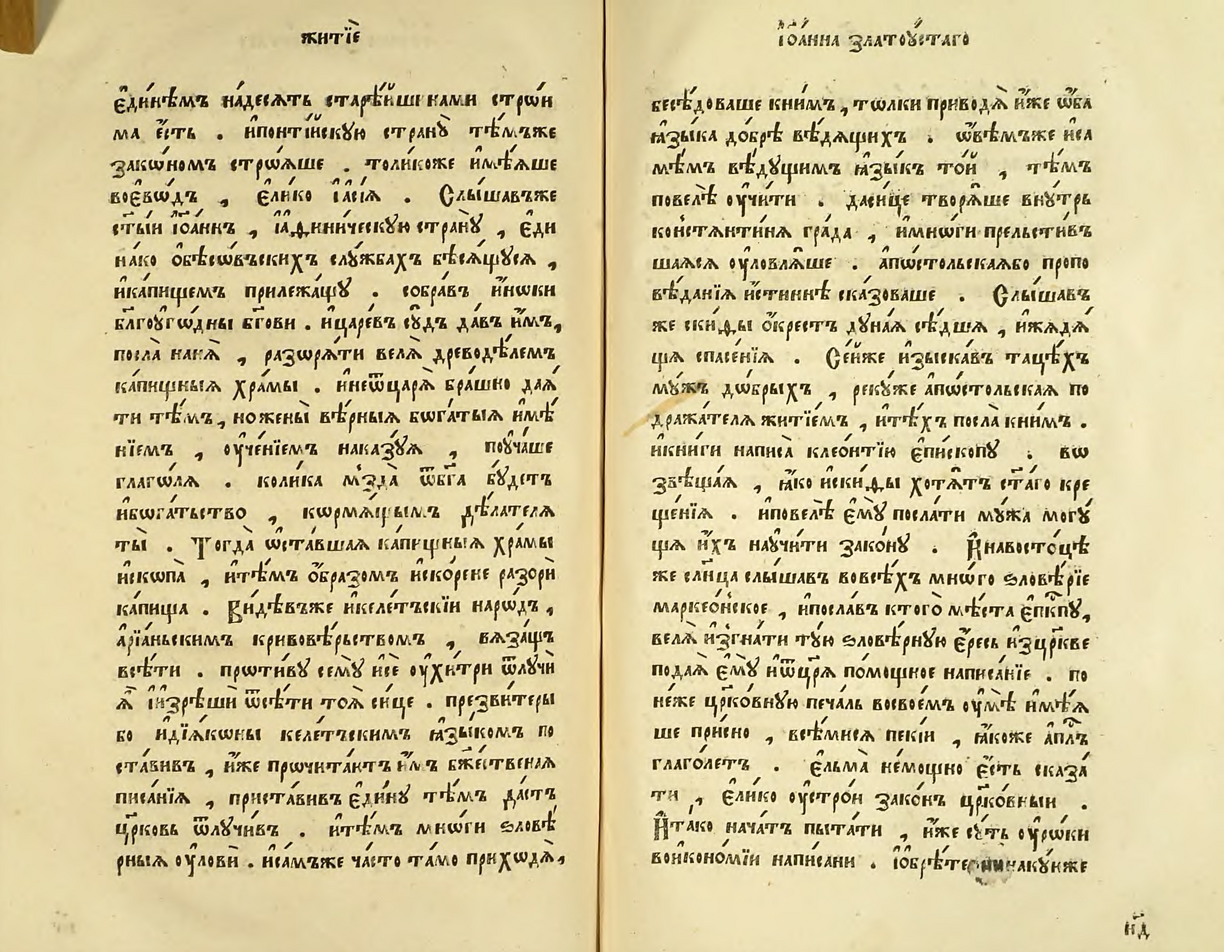 житїѐ
є҆ди́нѣмъ на́десѧть старѣ́йшинами стро́и
ма є҆́сть . и҆понті́йскꙋю странꙋ̀ тѣ́мъже
зако́номъ стро́ѧше . толи́коже и҆мѣ́ѧше
воєво́дъ , є҆ли́ко і҆а́сїѧ . Слы́шавъже
ст҃ы́и і҆ѡа́ннъ , і҆аѳини́ческꙋю странꙋ̀ , є҆ди
на́ко ѻ҆бѣсѡ́въскихъ слꙋ́жбахъ бѣсѧ́щꙋсѧ ,
и҆ка́пищемъ прилежа́щꙋ . собра́въ и҆́ноки
бл҃гоꙋго́дны бг҃ови . и҆царе́въ сꙋ́дъ да́въ и҆̀мъ,
посла̀ нанѧ̀ , разѡрѧ́ти велѧ̀ древодѣ́лемъ
ка́пищныѧ хра́мы . и҆неѿцарѧ̀ бра́шно даѧ́
ти тѣ́мъ, ножены̀ вѣ́рныѧ бѡга́тыѧ и҆мѣ́
нїемъ , оу҆че́нїемъ наказꙋ́ѧ , поꙋча́ше
глаго́лѧ . коли́ка мъзда̀ ѿбг҃а бꙋ́детъ
и҆бѡга́тьство , кѡрмѧ́щымъ дѣ́лателѧ
ты̀ . Тогда̀ ѡ҆ста́вшаѧ ка́пищныѧ хра́мы
и҆скопа̀ , и҆тѣ́мъ ѻ҆́бразомъ и҆скорене разорѝ
ка́пища . Ви́дѣвъже и҆келе́тъскїи наро́дъ ,
а҆рїа́ньскимъ кривовѣ́рьствомъ , вѧ́защъ
всѣ́ти . прѡти́вꙋ семꙋ̀ и҆сѐ оу҆хитрѝ ѿлꙋчѝ
ѧ҆̀ і҆изрѣшѝ ѿсѣ́ти тоѧ̀ си́це . презви́теры
бо и҆дїѧ́коны келе́тъскимъ ꙗ҆зы́комъ по
ста́вивъ , и҆́же прѡчита́ютъ и҆̀мъ бж҃е́ственаѧ
писа́нїѧ , приста́вивъ є҆ди́нꙋ тѣ́мъ да́стъ
цр҃ковь ѿлꙋчи́въ . и҆тѣ́мъ мнѡ́ги ѕловѣ́
рныѧ оу҆ловѝ . и҆са́мъже ча́сто та́мо прихѡдѧ̀,
і҆ѡа́нна златоꙋ́стаго
бесѣ́доваше кни́мъ , то́лки приводѧ̀ и҆́же ѻ҆́ба
ꙗ҆зы́ка до́брѣ вѣ́дѧщихъ . ѡ҆вѣ́мъже и҆са
мѣ́мъ вѣ́дꙋщимъ ꙗ҆зы́къ то́й , тѣ́мъ
повелѣ̀ оу҆чи́ти . даси́це творѧ́ше внꙋ́трь
константи́нѧ гра́да , и҆мно́ги прельсти́въ
шаѧсѧ оу҆ловлѧ́ше . а҆по́стольскаѧбо пропо
вѣ́данїѧ и҆́стиннѣ ска́зоваше . Слы́шавъ
же ски́ѳы ѻ҆́крестъ дꙋна́ѧ сѣ́дшѧ , и҆жа́дѧ
щѧ спасе́нїѧ . Се́йже и҆зыска́въ таце́хъ
мꙋ́жъ дѡ́брыхъ , рекꙋ́же а҆по́стольскаѧ по
дража́телѧ житїе́мъ , и҆тѣ́хъ посла̀ кни́мъ .
и҆кни́ги написа̀ клео́нтїю є҆пи́скопꙋ . во
звѣща́ѧ , ꙗ҆́ко и҆ски́ѳы хотѧ́тъ ст҃а́го кре
ще́нїѧ . и҆повелѣ̀ є҆мꙋ̀ посла́ти мꙋ́жа могꙋ́
щѧ и҆́хъ наꙋчи́ти зако́нꙋ . И҆навосто́цѣ
же сл҃нца слы́шавъ вовсѣ́хъ мно́го ѕловѣ́рїе
маркео́нское , и҆посла́въ ктого̀ мѣ́ста є҆пк҃пꙋ,
велѧ̀ и҆згна́ти тꙋ́ю ѕловѣ́рнꙋю є҆́ресь и҆зцр҃кве
пода́ѧ є҆мꙋ̀ и҆ѿцр҃ѧ̀ помо́щное написа́нїе . по
не́же цр҃ко́внꙋю печа́ль восвое́мъ оу҆мѣ̀ и҆мѣ́ѧ
ше при́сно , всѣ́мисѧ пекі́и , ꙗ҆́коже а҆пл҃ъ
глаго́летъ . є҆льма̀ не́мощно є҆́сть сказа́
ти , є҆ли́ко оу҆стро́и зако́нъ цр҃ко́вныи .
И҆та́ко нача́тъ пыта́ти , и҆́же сꙋ́ть оу҆ро́ки
вои҆коно́мїи напи́сани .
н҃д